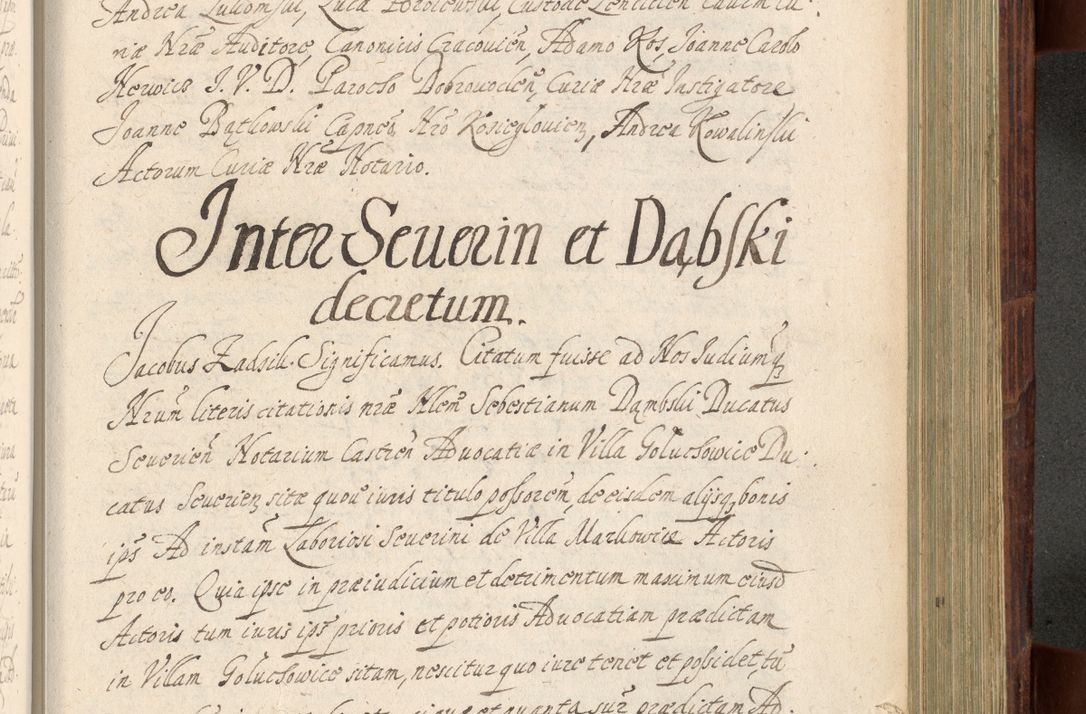 Andrea Lukomski, Luca Custode Lencicien
riæ Nræ Auditore, Canonicis Cracovien̄, Adamo Kos, Joanne Carolo
Herwics J. V. D. Parocho Dobrovoden̄, Curiæ Nræ Instigatore
Joanne Bątkowski Capneo Nro Kosieglovien, Andrea Kowalinski
Actorum Curiæ Nræ Notario.
Inter Seuerin et Dąbski
decretum.
Jacobus Zadzik. Significamus. Citatum fuisse ad Nos Iudiumq3
Nrum̄ literis citationis nræ Nlem̄ Sebestianum Dambski Ducatus
Severien̄ Notarium Castren̄ Advocatiæ in Villa Goluchowice Du
catus Severien sitæ quovis iuris titulo possorem̄, de eisdem alijsq3 bonis
ips̄ Ad instam̄ Laboriosi Seuerini de Villa Markowice Actoris
pro eo. Quia ipse in præiudicium et detrimentum maximum eiusd̄
Actoris tum iuris ips̄ prioris et potioris Advocatiam prædictam
in Villam Goluchowice sitam, nescitur quo iure tenet et possidet, tū
et quanta sur̄ prædictam Ad